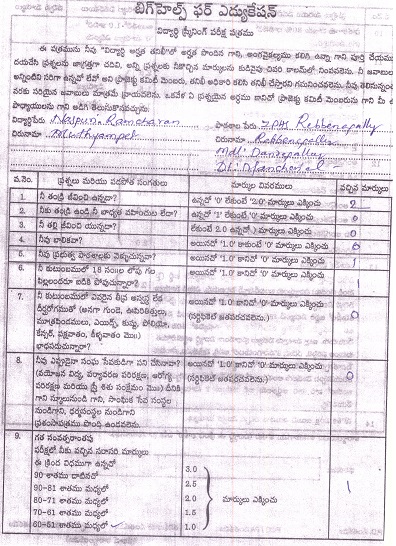 బిగ్ హెల్ప్ ఫర్ ఎడ్యుకేషన్
విద్యార్థి స్క్రీనింగ్ పరీక్ష పత్రము
ఈ పత్రమును నీవు "విద్యార్థి అర్హత తనిఖీ"లో అర్హత పొందిన గాని, అంగవైకల్యము కలిగి ఉన్నా గాని పూర్తి చేయుము
దయచేసి ప్రశ్నలను జాగ్రత్తగా చదివి, అన్ని ప్రశ్నలకు నీకొచ్చిన మార్కులను కుడివైపు చివరి కాలమ్‌లో నింపవలెను. నీ జవాబులు
విద్యార్థిపేరు Naspuri Ramcharan పాఠశాల పేరు ZPHS Rebbenapally
చిరునామా Muthyampet చిరునామా Rebbenapally
Mdl: Dandepally
Dt: Mancherial
వ.నెం. ప్రశ్నలు మరియు పరిస్థితి సంగతులు మార్కుల వివరములు వచ్చిన మార్కులు
1. నీ తండ్రి జీవించి ఉన్నాడా? ఉన్నచో '0' లేకుంటే '2.0' మార్కులు ఎక్కించు 2
2. నీకు తండ్రి ఉండి నీ బాధ్యత వహించుట లేదా? ఉన్నచో '1' లేకుంటే '0' మార్కులు ఎక్కించు 0
3. నీ తల్లి జీవించి యున్నదా? లేకుంటే 2.0 ఉన్నచో 0 మార్కులు ఎక్కించు 0
4. నీవు బాలికవా? అయినచో '1.0' కాకుంటే '0' మార్కులు ఎక్కించు 0
5. నీవు ప్రభుత్వ పాఠశాలకు వెళ్ళుచున్నావా? అయినచో '1.0' కానిచో '0' మార్కులు ఎక్కించు 1
6. నీ కుటుంబములో 18 సం॥ల లోపు గల అయినచో '1.0' కానిచో '0' మార్కులు ఎక్కించు 1
పిల్లలందరూ బడికి పోవుచున్నారా?
7. నీ కుటుంబములో ఎవరైన దీర్ఘ అస్వస్థ లేక అయినచో '1.0' కానిచో '0' మార్కులు ఎక్కించు 0
దీర్ఘరోగముతో (అనగా గుండె, ఊపిరితిత్తులు, (సర్టిఫికెట్ జతపరచవలెను.)
మూత్రపిండములు, ఎయిడ్స్, కుష్ఠు, పోలియో,
కేన్సర్, పక్షవాతం, కీళ్ళవాతం మొ॥)
బాధపడుచున్నారా?
8. నీవు ఎప్పుడైనా సంఘ సేవకుడిగా పని చేసినావా? అయినచో '1.0' కానిచో '0' మార్కులు ఎక్కించు 0
(వయోజన విద్య, పర్యావరణ పరిరక్షణ, ఆరోగ్య (సర్టిఫికెట్ జతపరచవలెను.)
పరిరక్షణ మరియు స్త్రీ శిశు సంక్షేమం మొ॥) దీనికి
గాని స్కూలునుండి గాని, సాంఘిక సేవ సంస్థల
నుండిగాని, ధర్మసంస్థల నుండిగాని
ప్రశంసాపత్రము పొంది ఉండవలెను.
9. గత సంవత్సరాంతపు
పరీక్షలో నీకు వచ్చిన సరాసరి మార్కులు
ఈ క్రింద విధముగా ఉన్నచో
90 శాతము దాటినచో 3.0
90-81 శాతము మధ్యలో 2.5
80-71 శాతము మధ్యలో 2.0 మార్కులు ఎక్కించు 1
70-61 శాతము మధ్యలో 1.5
60-51 శాతము మధ్యలో 1.0